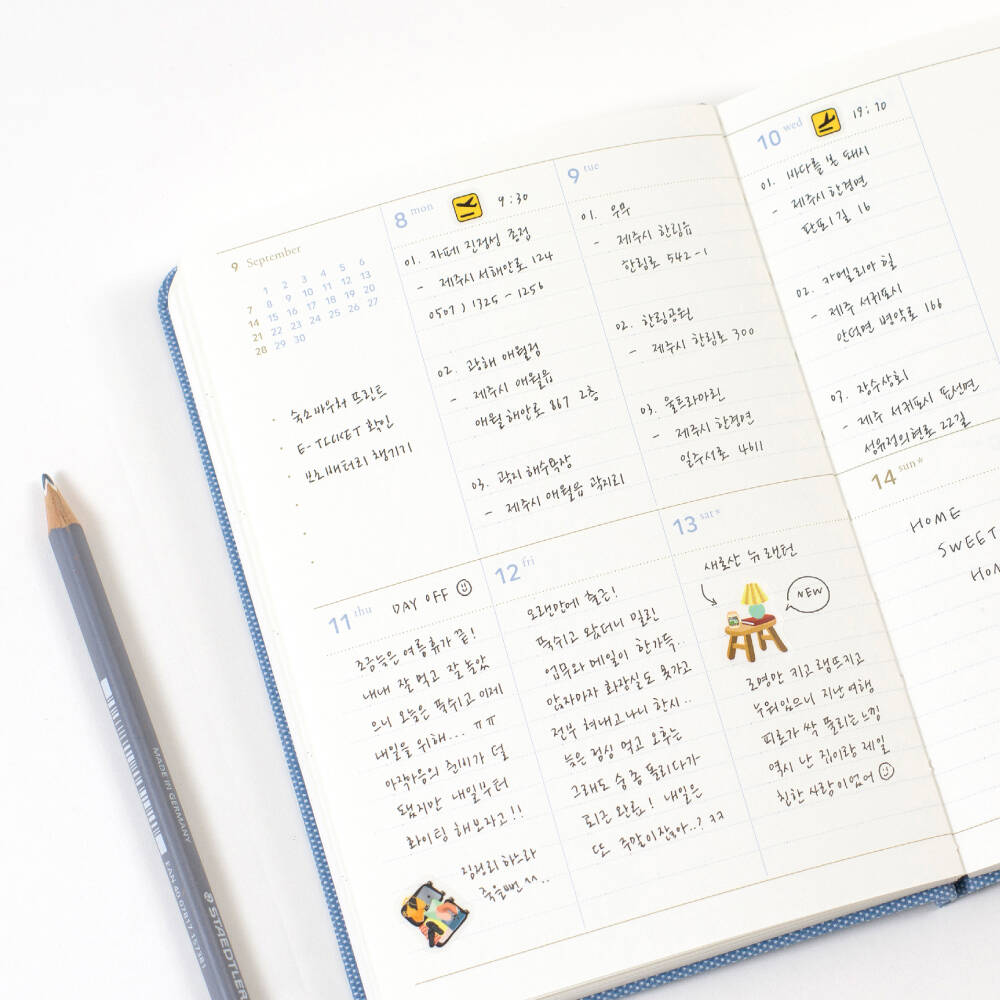 9 September
1 2 3 4 5 6
7 8 9 10 11 12 13
14 15 16 17 18 19 20
21 22 23 24 25 26 27
28 29 30
· 숙소바우처 프린트
· E-TICKET 확인
· 보조배터리 챙기기
8 mon 9:30
01. 카페 진정성 종점
- 제주시 서해안로 124
0507) 1325-1256
02. 광해 애월점
- 제주시 애월읍
애월해안로 867 2층
03. 곽지 해수욕장
- 제주시 애월읍 곽지리
9 tue
01. 우무
- 제주시 한림읍
한림로 542-1
02. 한림공원
- 제주시 한림로 300
03. 울트라마린
- 제주시 한경면
일주서로 4611
10 wed 19:20
01. 바다를 본 돼지
- 제주시 한경면
판포1길 16
02. 카멜리아 힐
- 제주 서귀포시
안덕면 병악로 166
03. 장수상회
- 제주 서귀포시 표선면
성읍정의현로 22길
11 thu DAY OFF
조금늦은 여름휴가 끝!
내내 잘 먹고 잘 놀았
으니 오늘은 푹쉬고 이제
내일을 위해... ㅠㅠ
아직마음의 준비가 덜
됐지만 내일부터
화이팅 해보자고!!
짐정리 하느라
죽을뻔 ^^..
12 fri
오랜만에 출근!
푹쉬고 왔더니 밀린
업무와 메일이 한가득..
앉자마자 화장실도 못가고
전부 쳐내고나니 한시..
늦은 점심 먹고 오후는
그래도 숨 좀 돌리다가
퇴근 완료! 내일은
또 주말이잖아..? ㅋㅋ
13 sat*
새로산 뉴 랜턴
NEW
조명만 키고 램프키고
누워있으니 지난여행
피로가 싹 풀리는느낌
역시 난 집이랑 제일
친한 사람이었어
14 sun*
HOME
SWEET
HOM
MADE IN GERMANY
EAN 40 07817 157381
STAEDTLER